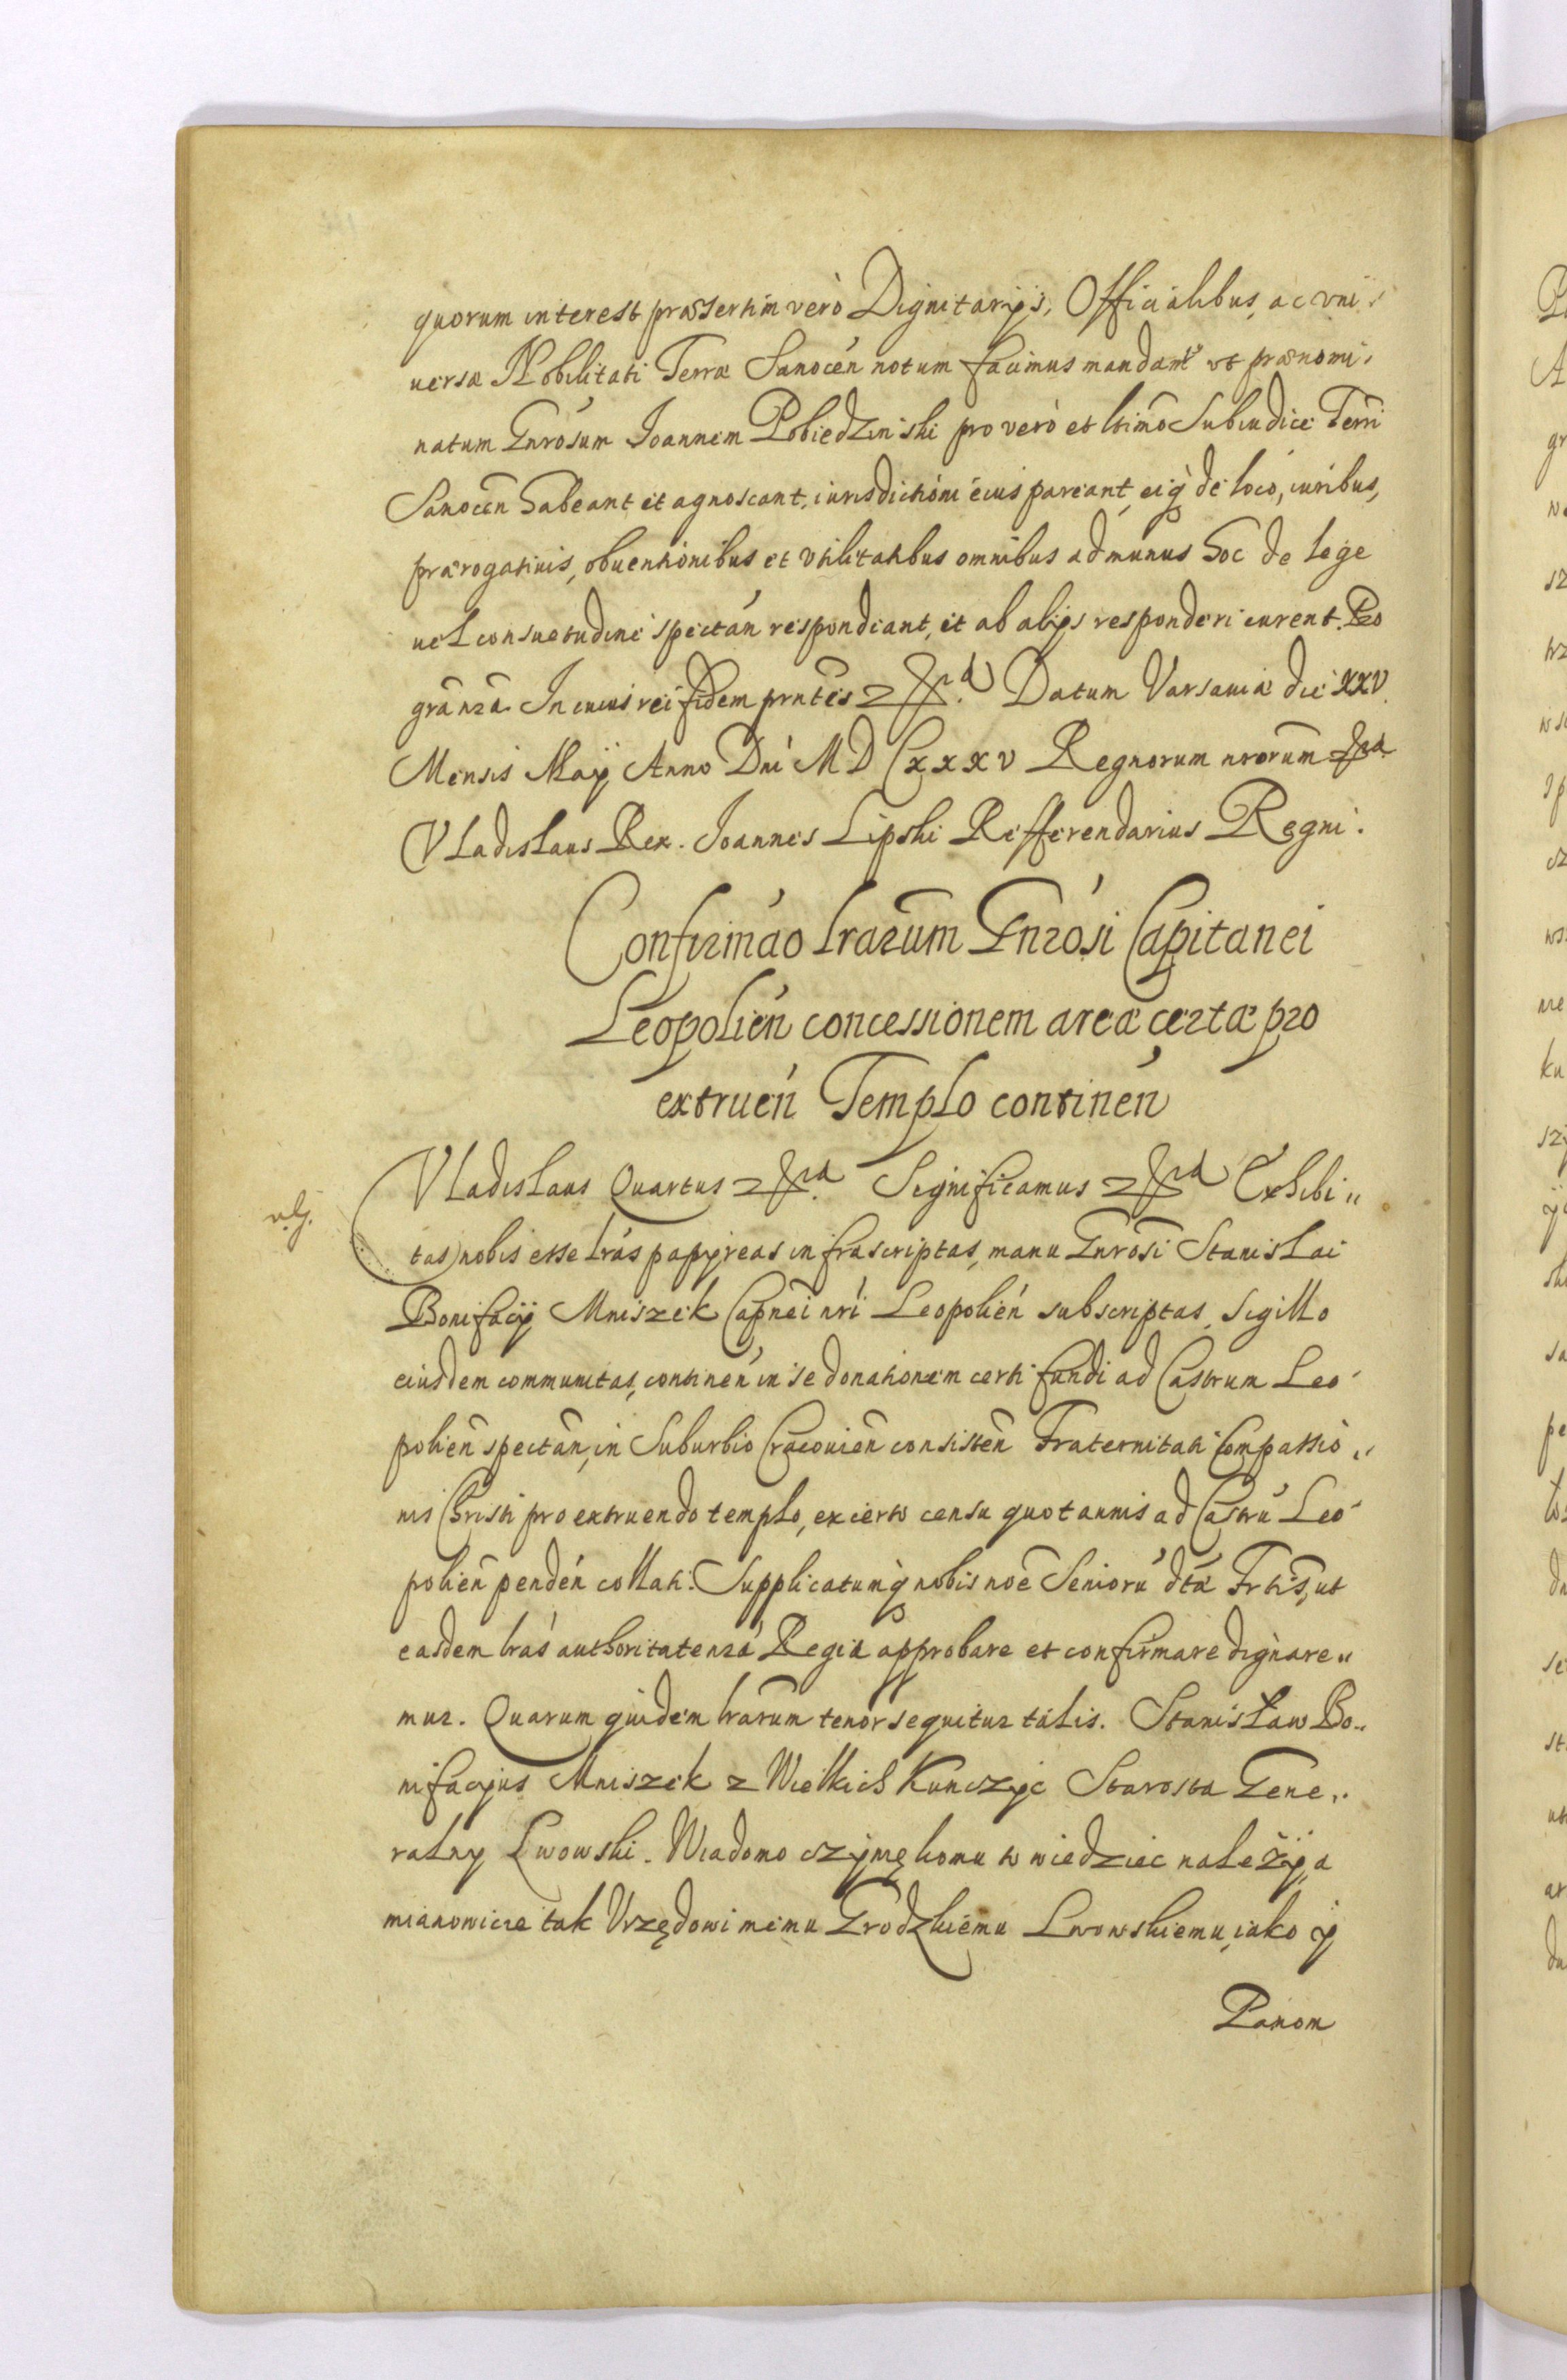 quorum interest præsertim verò Dignitarijs, Officialibus, ac vni-
uersæ Nobilitati Terræ Sanocen notum facimus mandam9 vt prænomi-
natum Gnrosum Joannem Pobiedzinski pro verò et ltimo Subiudice Terri
Sanocen habeant et agnoscant, iurisdictioni eius pareant, eiq de loco, iuribus,
prærogatiuis, obuentionibus et vtilitatibus omnibus ad munus hoc de lege
uel consuetudine spectán respondeant, et ab alijs responderi curent. Pro
grã nrã. In cuius rei fidem prntes Datum Varsauiæ die XXV.
Mensis Maij Anno Dni MDCXXXV Regnorum nrorum
Vladislaus Rex. Joannes Lipski Refferendarius Regni.
Confirmáo lrarum Gnrosi Capitanei
Leopolień concessionem areæ certæ pro
extrueń Templo contineń
Vladislaus Quartus Significamus Exhibi„
tas nobis esse lras papyreas infrascriptas, manu Gnrosi Stanislai
Bonifacij Mniszek Capnei nri Leopolień subscriptas, sigillo
eiusdem communitas, contineń in se donationem certi fundi ad Castrum Leo-
polien spectan, in Suburbio Cracouien consisten Fraternitati Compassio„
nis Christi pro extruendo templo, ex certo censu quotannis ad Castrũ Leo-
polien penden collati. Supplicatumq nobis noe Seniorũ dtæ Frtis, ut
easdem lras authoritate nrá Regia approbare et confirmare dignare„
mur. Quarum quidem lrarum tenor sequitur talis. Stanisław Bo„
nifacyus Mniszek z Wielkich Kunczyc Starosta Gene„
ralny Lwowski. Wiadomo czynię komu to wiedziec nalezy, a
mianowicie tak Vrzędowi memu Grodzkiemu Lwowskiemu, iako y
Panom